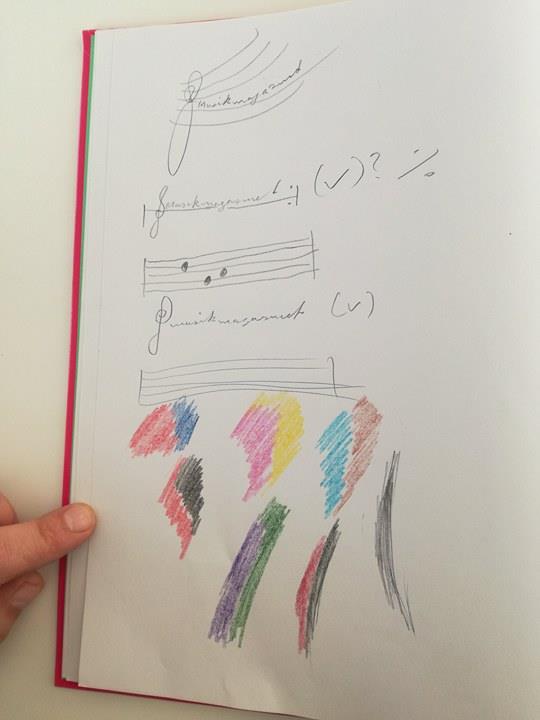 Musikmagasinet
Musikmagasinet (√)? ٪
Musikmagasinet (√)